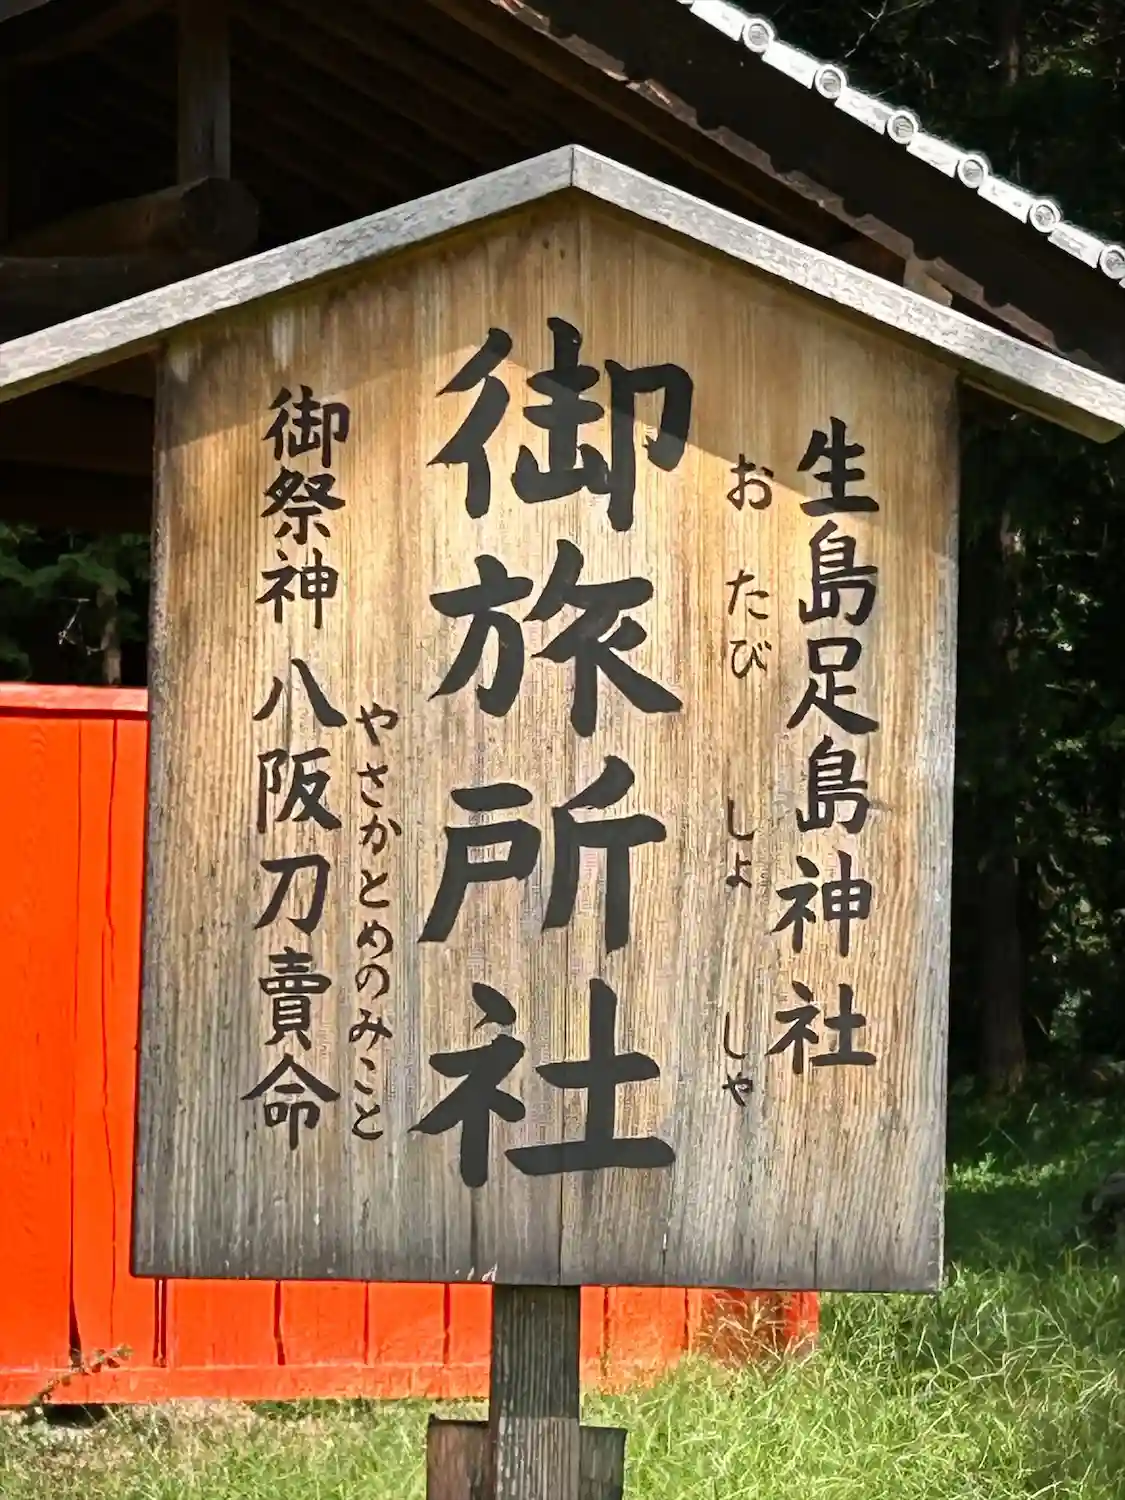 生島足島神社
おたびしょしゃ
御旅所社
やさかとめのみこと
御祭神 八阪刀賣命